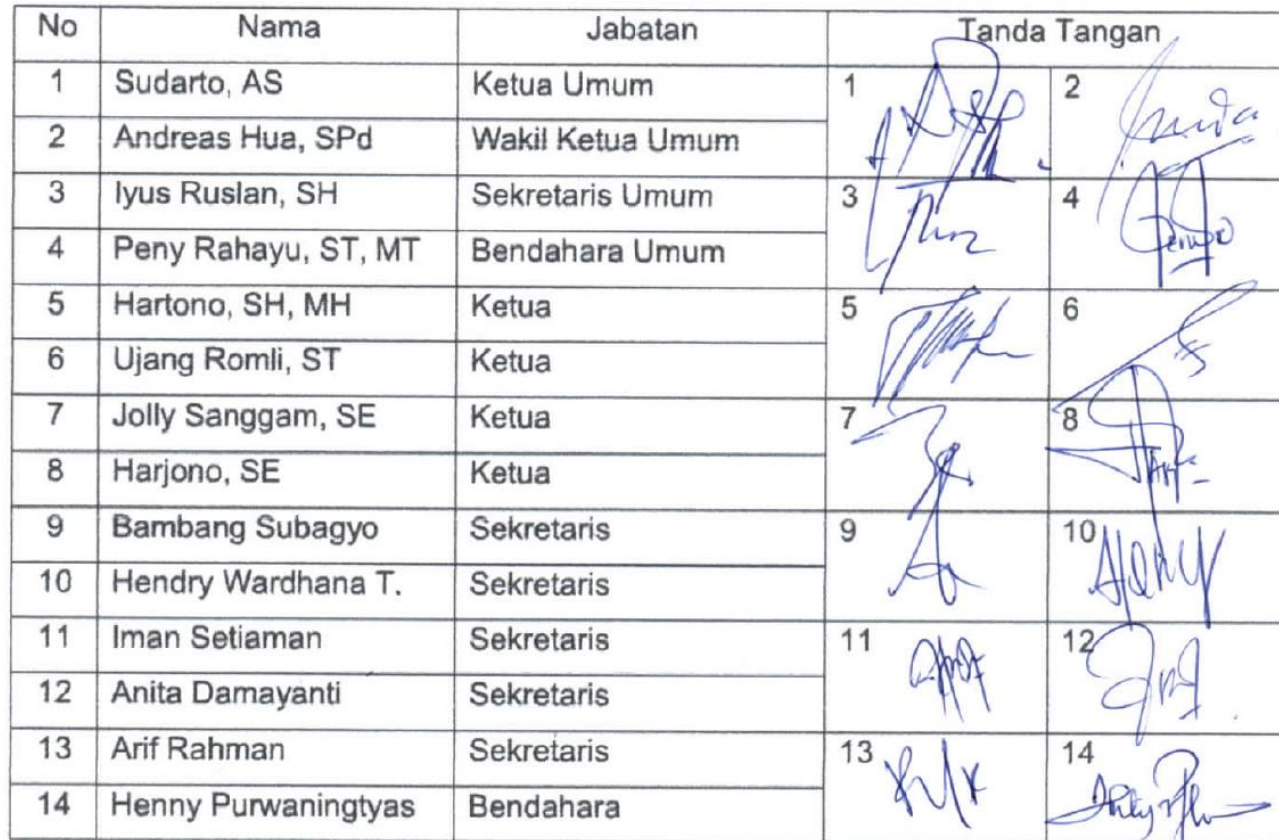 No Nama Jabatan Tanda Tangan
1 Sudarto, AS Ketua Umum 1 2
2 Andreas Hua, SPd Wakil Ketua Umum
3 Iyus Ruslan, SH Sekretaris Umum 3 4
4 Peny Rahayu, ST, MT Bendahara Umum
5 Hartono, SH, MH Ketua 5 6
6 Ujang Romli, ST Ketua
7 Jolly Sanggam, SE Ketua 7 8
8 Harjono, SE Ketua
9 Bambang Subagyo Sekretaris 9 10
10 Hendry Wardhana T. Sekretaris
11 Iman Setiaman Sekretaris 11 12
12 Anita Damayanti Sekretaris
13 Arif Rahman Sekretaris 13 14
14 Henny Purwaningtyas Bendahara